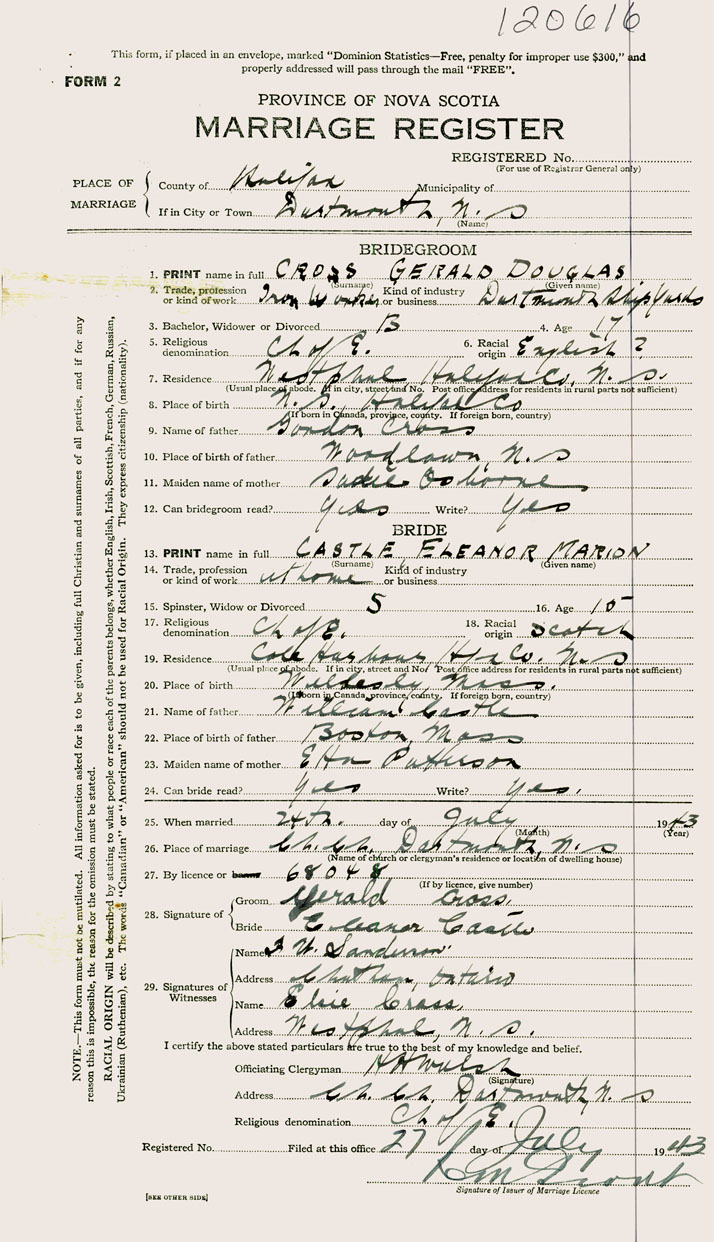 120616
This form, if placed in an envelope, marked "Dominion Statistics—Free, penalty for improper use $300," and
properly addressed will pass through the mail "FREE".
FORM 2
PROVINCE OF NOVA SCOTIA
MARRIAGE REGISTER
REGISTERED No.
(For use of Registrar General only)
PLACE OF MARRIAGE
County of Halifax Municipality of
If in City or Town Dartmouth, N. S
(Name)
BRIDEGROOM
1. PRINT name in full CROSS GERALD DOUGLAS
(Surname) (Given name)
2. Trade, profession or kind of work Iron Worker Kind of industry or business Dartmouth Shipyards
3. Bachelor, Widower or Divorced B 4. Age 17
5. Religious denomination Ch of E. 6. Racial origin English ?
7. Residence Westphal Halifax Co, N. S.
(Usual place of abode. If in city, street and No. Post office address for residents in rural parts not sufficient)
8. Place of birth N. S., Halifax Co
(If born in Canada, province, county. If foreign born, country)
9. Name of father Gordon Cross
10. Place of birth of father Woodlawn, N. S
11. Maiden name of mother Sadie Osborne
12. Can bridegroom read? yes Write? yes
BRIDE
13. PRINT name in full CASTLE ELEANOR MARION
(Surname) (Given name)
14. Trade, profession or kind of work at home Kind of industry or business
15. Spinster, Widow or Divorced S 16. Age 15
17. Religious denomination Ch of E. 18. Racial origin Scotch
19. Residence Cole Harbour, Hfx Co. N. S
(Usual place of abode. If in city, street and No. Post office address for residents in rural parts not sufficient)
20. Place of birth Mass.
(If born in Canada, province, county. If foreign born, country)
21. Name of father William Castle
22. Place of birth of father Boston, Mass
23. Maiden name of mother Etta Patterson
24. Can bride read? yes Write? yes.
25. When married 24th. day of July 1943
(Month) (Year)
26. Place of marriage Ch. Ch. Dartmouth, N. S
(Name of church or clergyman's residence or location of dwelling house)
27. By licence or banns 68048
(If by licence, give number)
28. Signature of
Groom Gerald Cross.
Bride Eleanor Castle
29. Signatures of Witnesses
Name W. Sanderson
Address Chatham, Ontario
Name Elsie Cross,
Address Westphal, N. S.
I certify the above stated particulars are true to the best of my knowledge and belief.
Officiating Clergyman H H Walsh
(Signature)
Address Ch. Ch. Dartmouth, N. S
Religious denomination Ch of E.
Registered No. Filed at this office 27 day of July 1943
Signature of Issuer of Marriage Licence
[SEE OTHER SIDE]
NOTE.—This form must not be mutilated. All information asked for is to be given, including full Christian and surnames of all parties, and if for any
reason this is impossible, the reason for the omission must be stated.
RACIAL ORIGIN will be described by stating to what people or race each of the parents belongs, whether English, Irish, Scottish, French, German, Russian,
Ukrainian (Ruthenian), etc. The words "Canadian" or "American" should not be used for Racial Origin. They express citizenship (nationality).